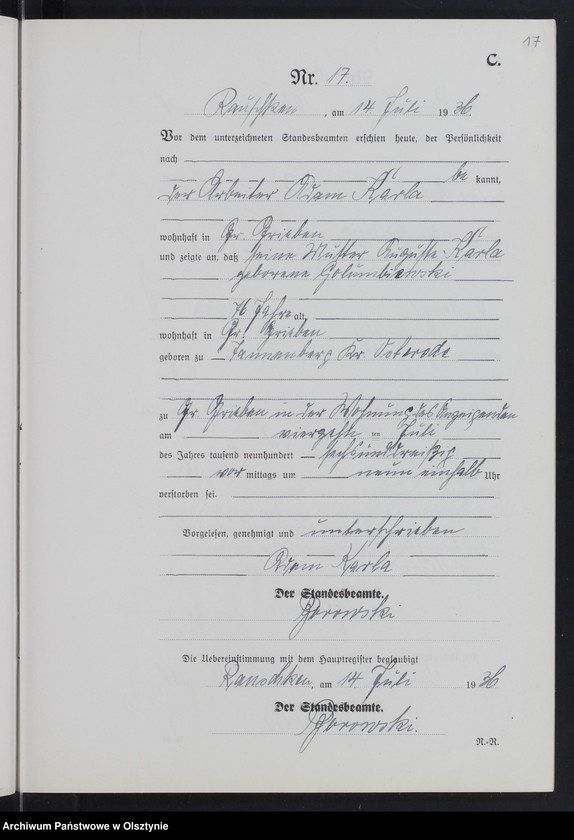 17
C.
Nr. 17.
Rauschken, am 14. Juli 1936.
Vor dem unterzeichneten Standesbeamten erschien heute, der Persönlichkeit
nach
be kannt,
der Arbeiter Adam Karla
wohnhaft in Gr. Grieben
und zeigte an, daß seine Mutter Auguste Karla
geborene Golumbiewski
76 Jahre alt,
wohnhaft in Gr. Grieben
geboren zu Tannenberg Kr. Osterode
zu Gr. Grieben in der Wohnung des Anzeigenden
am vierzehn ten Juli
des Jahres tausend neunhundert sechsunddreißig
vor mittags um neun einhalb Uhr
verstorben sei.
Vorgelesen, genehmigt und unterschrieben
Adam Karla
Der Standesbeamte.
Borowski
Die Uebereinstimmung mit dem Hauptregister beglaubigt
Rauschken, am 14. Juli 1936
Der Standesbeamte.
Borowski.
R.-R.
Archiwum Państwowe w Olsztynie